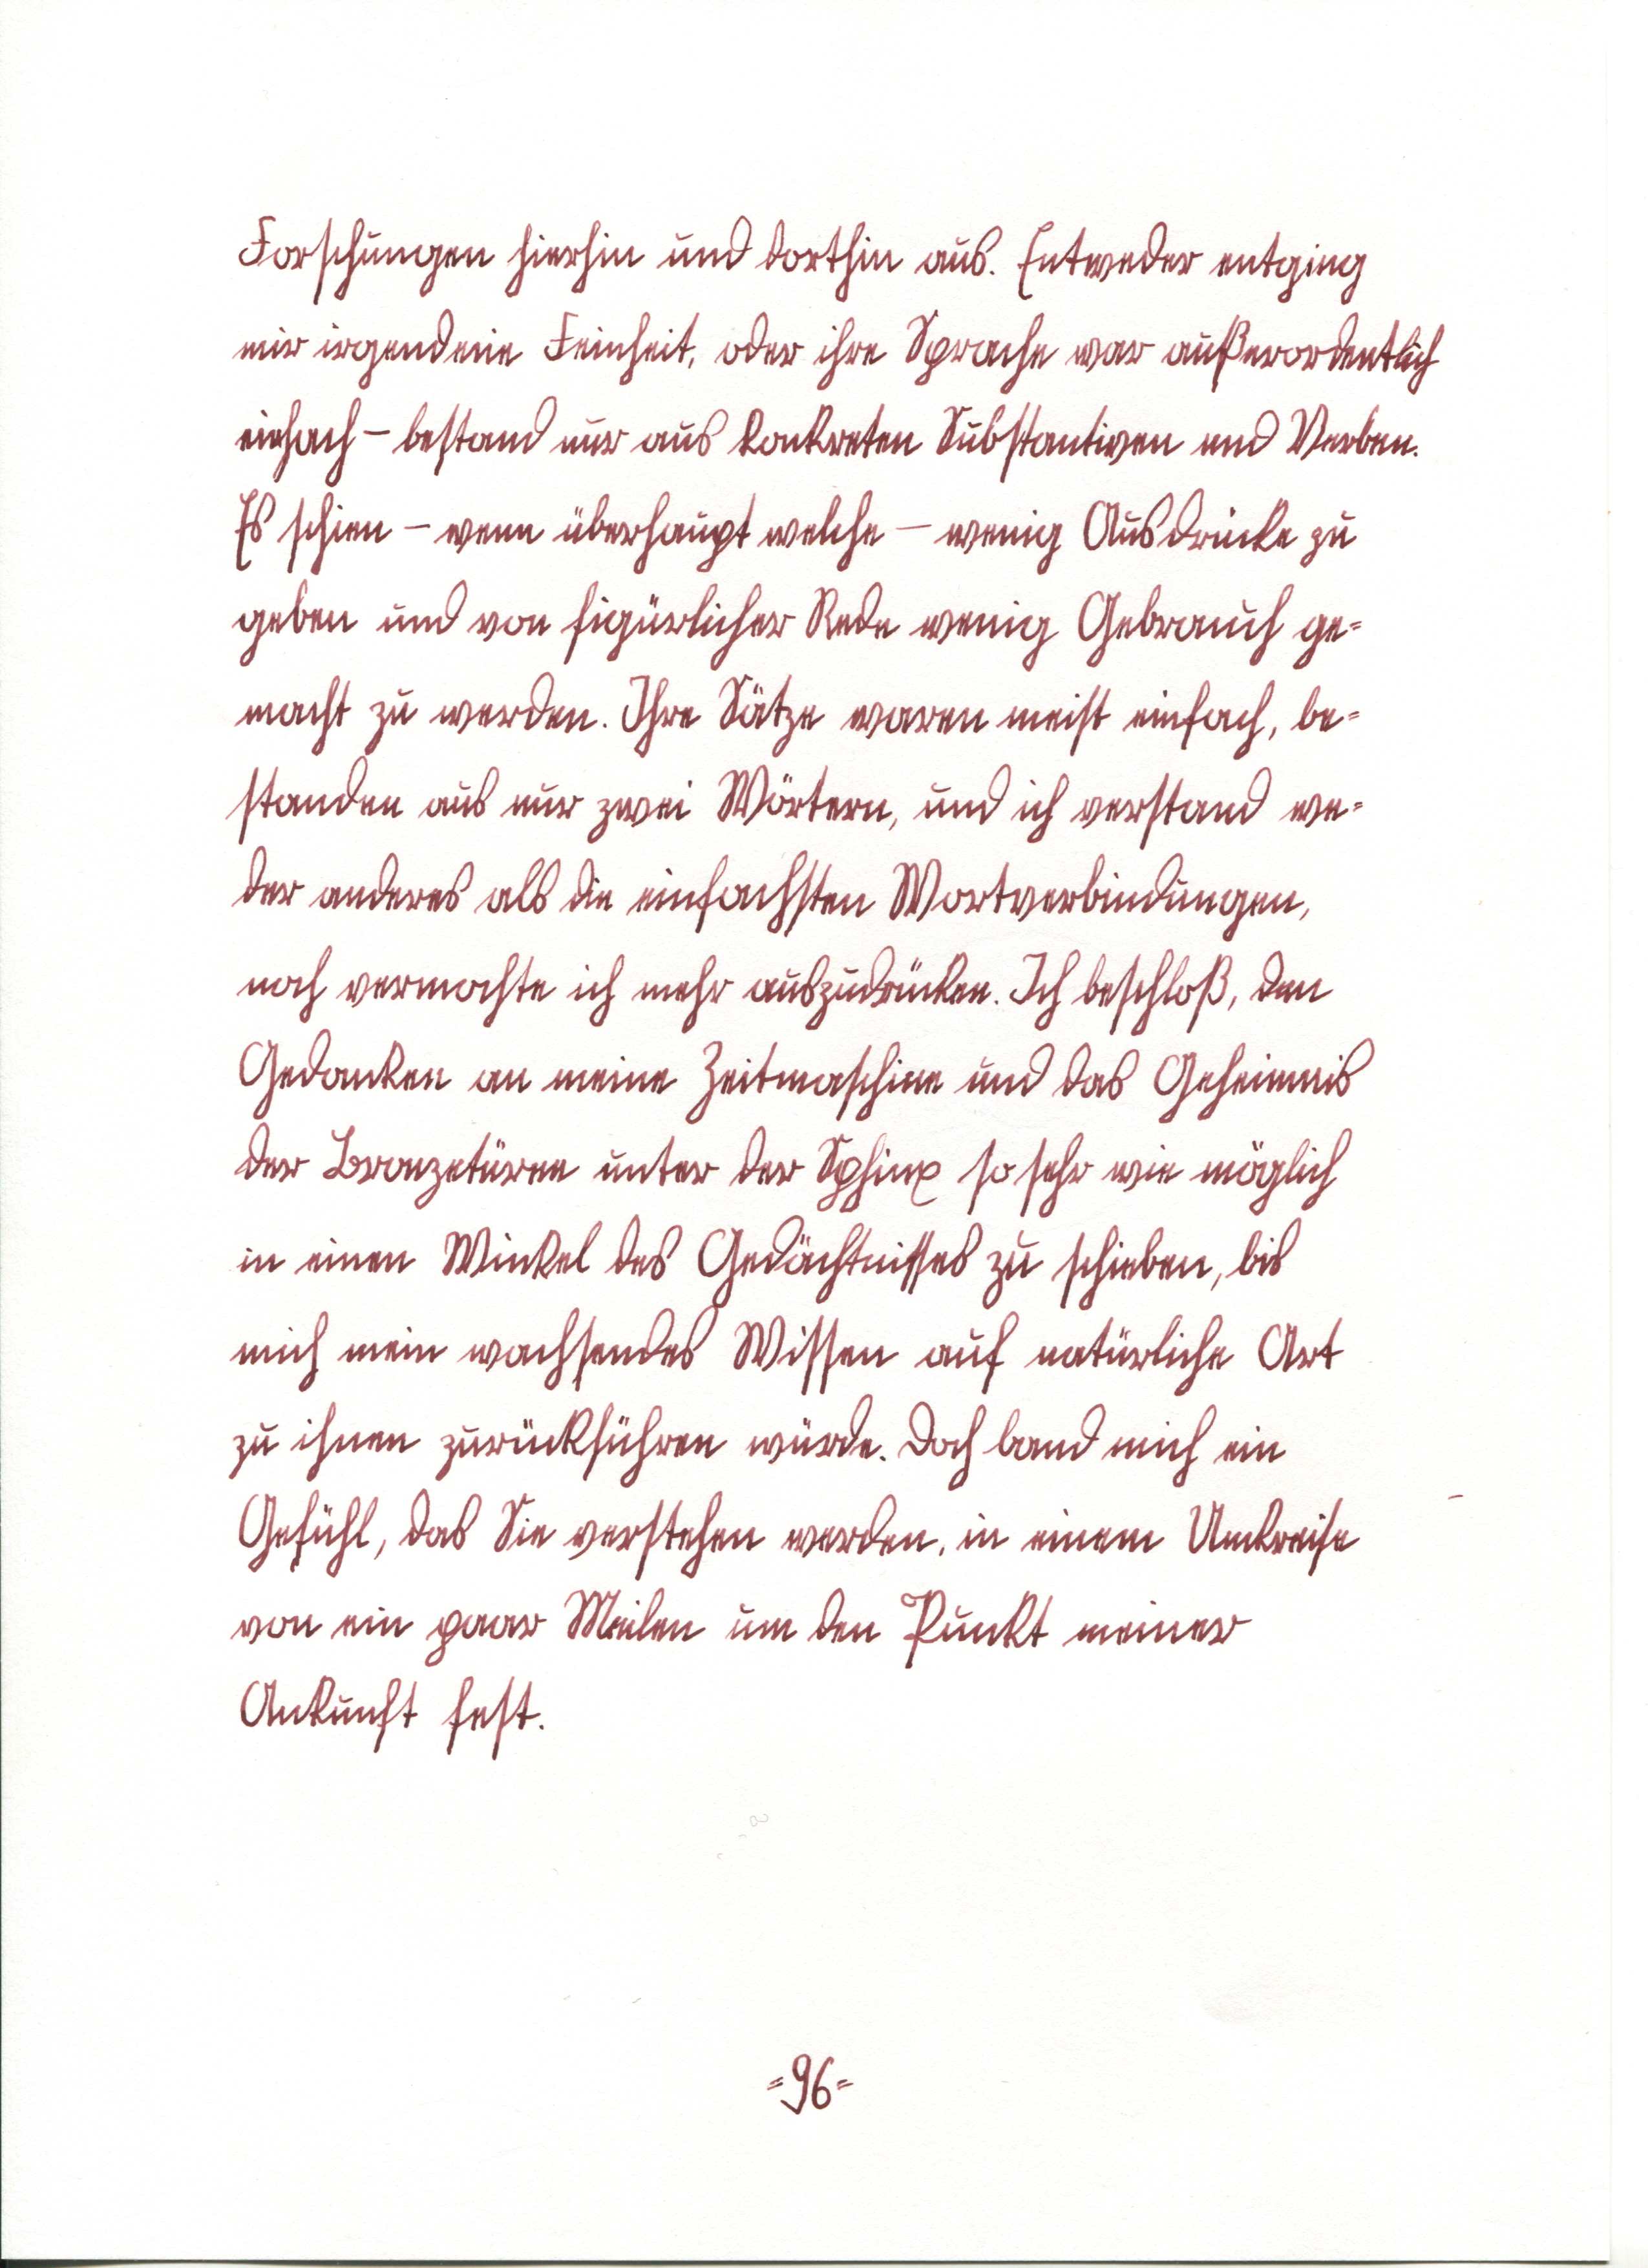 Forschungen hierhin und dorthin aus. Entweder entging
mir irgendeine Feinheit, oder ihre Sprache war außerordentlich
einfach – bestand nur aus konkreten Substantiven und Verben.
Es schien – wenn überhaupt welche – wenig Ausdrücke zu
geben und von figürlicher Rede wenig Gebrauch ge-
macht zu werden. Ihre Sätze waren meist einfach, be-
standen aus nur zwei Wörtern, und ich verstand we-
der anderes als die einfachsten Wortverbindungen,
noch vermochte ich mehr auszudrücken. Ich beschloß, den
Gedanken an meine Zeitmaschine und das Geheimnis
der Bronzetüren unter der Sphinx so sehr wie möglich
in einen Winkel des Gedächtnisses zu schieben, bis
mich mein wachsendes Wissen auf natürliche Art
zu ihnen zurückführen würde. Doch band mich ein
Gefühl, das Sie verstehen werden, in einem Umkreise
von ein paar Meilen um den Punkt meiner
Ankunft fest.
-96-